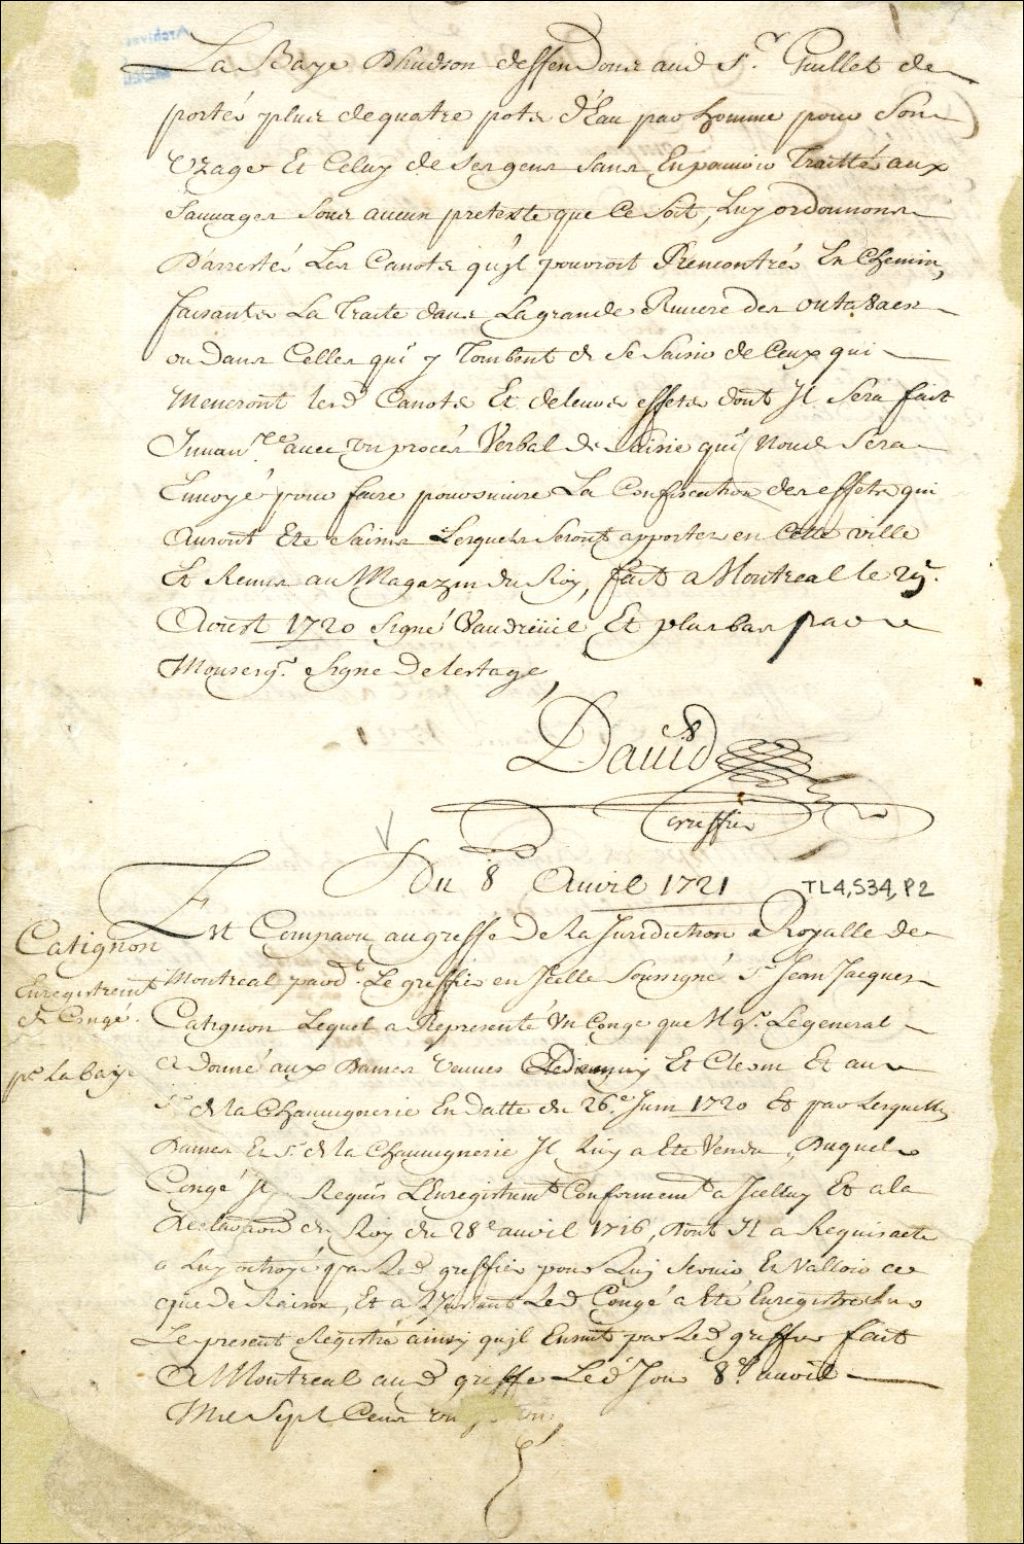 La Baye Dhudson deffendons aud Sr. Guillet de
portér plus de quatre pots d'Eau par homme pour Son
Uzage Et Celuy de Ses gens sans En pouvoir Traitté aux
Sauvages Sous aucun pretexte que Ce Soit, Luy ordonnons
D'arrestér Les Canots qu'jl pouroit Rencontrér En Chemin,
faisants La Traite dans La grande Riviere des outa8aes
ou Dans Celles qui y Tombent & Se Saisir de Ceux qui
Meneront lesd Canots Et de leurs effets dont Jl Sera fait
Jnvanre. avec un procés Verbal de Saisie qui Nous Sera
Envoyé pour faire poursuivre La Confiscation des effets qui
Auront Ete Saisis Lesquels Seront apportez en Cette ville
Et Remis au Magazin du Roy, fait a Montreal le 29.
Aoust 1720 Signé Vaudreüil Et plus bas par
Monseigr. Signe Delestage,
David
Greffier
Du 8 Auvril 1721
TL4, S34, P2
Catignon
Enregistremt
de Congé.
pr. la baye
Est Comparu au greffe De la Juridiction Royalle de
Montreal pardt. Le greffier en Jcelle Soussigné Sr Jean Jacques
Catignon Lequel a Representé Un Conge que Mgr. Le general
a donné aux Dames veuves Et Clerin Et au
Sr. de la Chauvignerie En datte du 26e. Juin 1720 Et par Lesquelles
Dames Et Sr. de la Chauvignerie Jl Luy a Ete Vendu, Duquel
Congé Jl Requis L'Enregistremt Conformemt a Jcelluy Et a la
Declaraon du Roy du 28e avril 1716, Dont Jl a Requis acte
a Luy octroyé par Led greffier pour Luy Servir Et Valloir ce
que De Raison, Et a L'Jnstant Led Congé a Eté Enregistré Sur
Le present Registre ainsy qu'jl Ensuit par Led greffier fait
A Montreal aud greffe Led Jour 8e. avril
Mil Sept Cens vingt un,